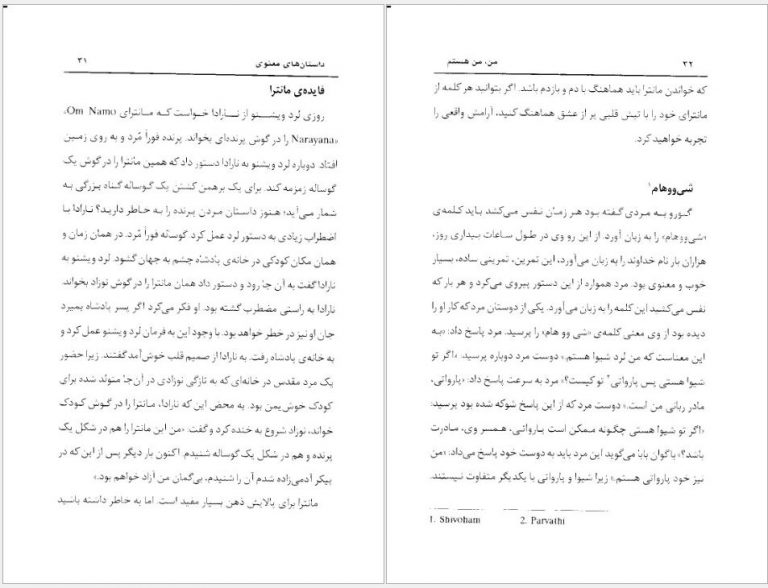 داستان‌های معنوی ۳۱
فایده‌ی مانترا
روزی لُرد ویشنو از نارادا خواست که مانترای Om Namo»
«Narayana را در گوش پرنده‌ای بخواند. پرنده فوراً مُرد و به روی زمین
افتاد. دوباره لرد ویشنو به نارادا دستور داد که همین مانترا را در گوش یک
گوساله زمزمه کند. برای یک برهمن کشتن یک گوساله گناه بزرگی به
شمار می‌آید؛ هنوز داستان مردن پرنده را به خاطر دارید؟ نارادا با
اضطراب زیادی به دستور لرد عمل کرد. گوساله فوراً مُرد. در همان زمان و
همان مکان کودکی در خانه‌ی پادشاه چشم به جهان گشود. لرد ویشنو به
نارادا گفت به آن جا رود و دستور داد همان مانترا را در گوش نوزاد بخواند.
نارادا به راستی مضطرب گشته بود. او فکر می‌کرد اگر پسر پادشاه بمیرد
جان او نیز در خطر خواهد بود. با وجود این به فرمان لرد ویشنو عمل کرد و
به خانه‌ی پادشاه رفت. به نارادا از صمیم قلب خوش‌آمد گفتند. زیرا حضور
یک مرد مقدس در خانه‌ای که به تازگی نوزادی در آن‌جا متولد شده برای
کودک خوش‌یمن بود. به محض این که نارادا، مانترا را در گوش کودک
خواند، نوزاد شروع به خنده کرد و گفت: «من این مانترا را هم در شکل یک
پرنده و هم در شکل یک گوساله شنیدم. اکنون بار دیگر پس از این که در
پیکر آدمی‌زاده شدم آن را شنیدم، بی‌گمان من آزاد خواهم بود.»
مانترا برای پالایش ذهن بسیار مفید است. اما به خاطر داشته باشید
۳۲ من، من هستم
که خواندن مانترا باید هماهنگ با دم و بازدم باشد. اگر بتوانید هر کلمه از
مانترای خود را با تپش قلبی پر از عشق هماهنگ کنید، آرامش واقعی را
تجربه خواهید کرد.
شی‌ووهام¹
گورو به مردی گفته بود هر زمان نفس می‌کشد باید کلمه‌ی
«شی‌ووهام» را به زبان آورد. از این رو وی در طول ساعات بیداری روز،
هزاران بار نام خداوند را به زبان می‌آورد، این تمرین، تمرینی ساده، بسیار
خوب و معنوی بود. مرد همواره از این دستور پیروی می‌کرد و هر بار که
نفس می‌کشید این کلمه را به زبان می‌آورد. یکی از دوستان مرد که کار او را
دیده بود از وی معنی کلمه‌ی «شی وو هام» را پرسید. مرد پاسخ داد: «به
این معناست که من لُرد شیوا هستم.» دوست مرد دوباره پرسید. «اگر تو
شیوا هستی پس پارواتی² تو کیست؟» مرد به سرعت پاسخ داد: «پارواتی،
مادر ربانی من است.» دوست مرد که از این پاسخ شوکه شده بود پرسید:
«اگر تو شیوا هستی چگونه ممکن است پارواتی، همسر وی، مادرت
باشد؟» باگوان بابا می‌گوید این مرد باید به دوست خود پاسخ می‌داد: «من
نیز خود پارواتی هستم.» زیرا شیوا و پارواتی با یکدیگر متفاوت نیستند.
1. Shivoham 2. Parvathi